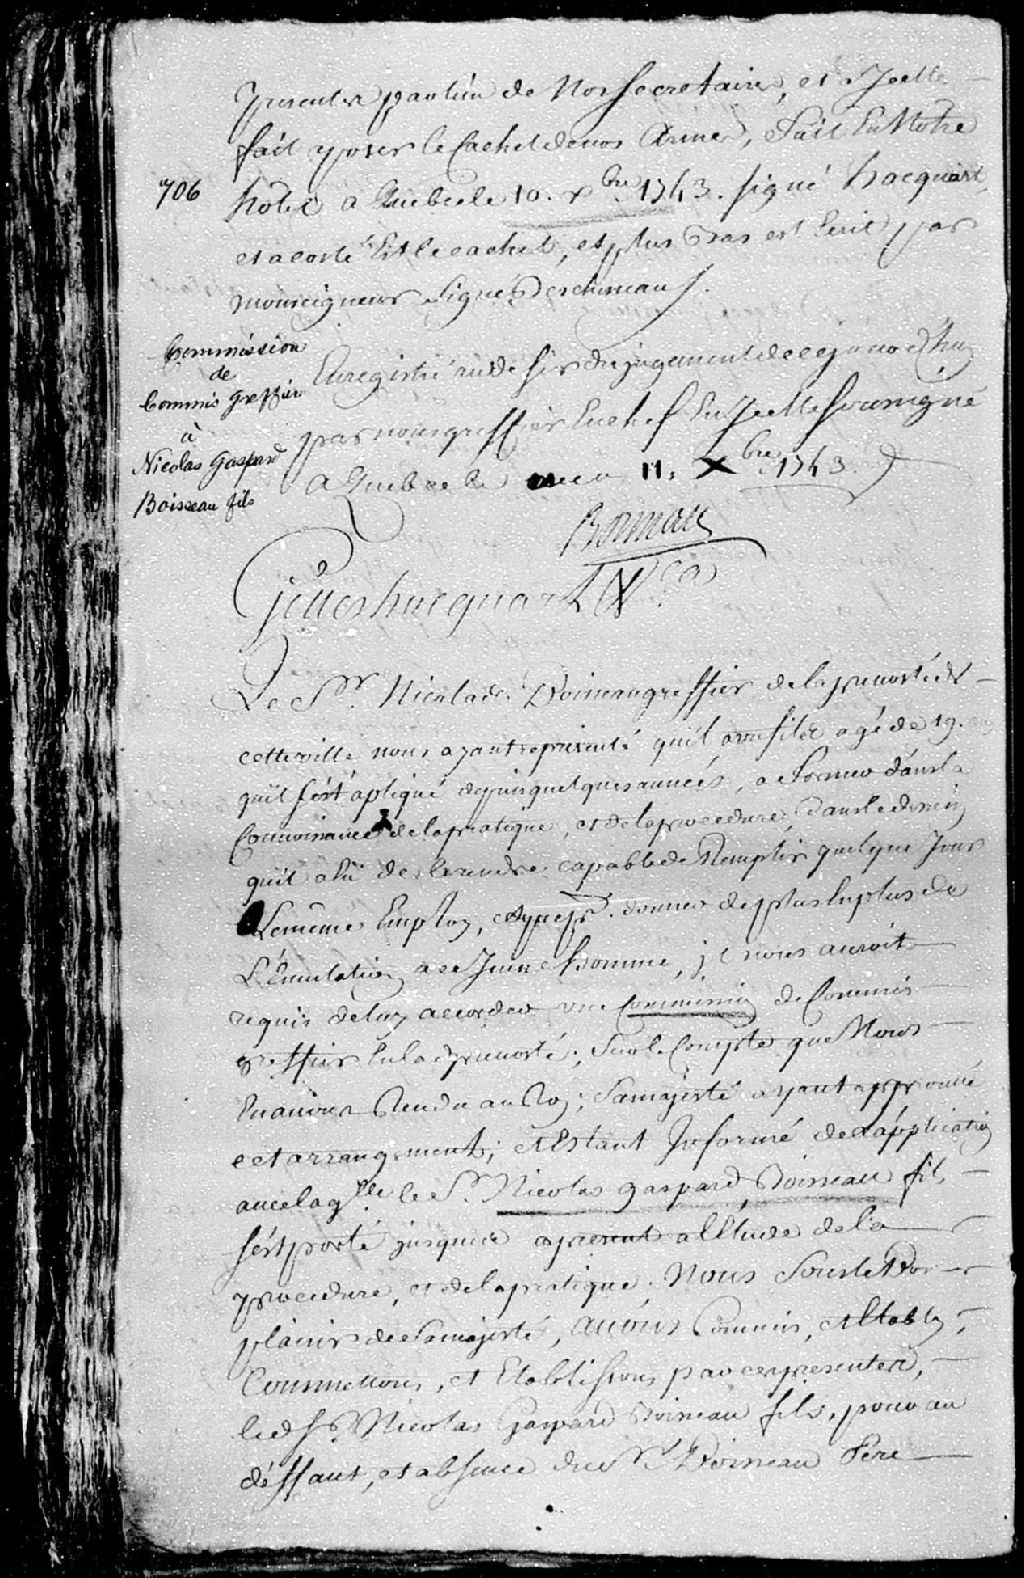 presenter par l'un de Nos secretaires, et a Jcelle
fait aposer le Cachet de nos Armes, Fait En Notre
706
hotel a Quebec le 10. xbre 1743. signé hocquart,
et a costé Est le cachet, et plus Bas est Ecrit par
monseigneur Signé Deschineaux /.
Commission
de
Commis Greffier
à
Nicolas Gaspard
Boisseau fils
Enregistré du jugement de ce jourd'huy
par nous greffier En chef En Jcelle soussigné
a Quebec le 11. Xbre 1743.
Boisseau
Gilles hocquart &ca
Le Sr. Nicolas Boisseau greffier de la prevosté de
cette ville nous ayant representé qu'il a un fils agé de 19. ans
quil s'est apliqué depuis quelques années, a Former dans la
Connoissance de la pratique, et de la procedure, Dans le dessein
quil a eû de le rendre capable de Remplir quelque Jour
Le même Employ, et que pr. donner de plus En plus de
L'Emulation a ce Jeune homme, jl nous auroit
requis de luy accorder une Commission de Commis
greffier En la Prevosté; Sur le Compte que Nous
En avons Rendu au Roy; Sa majesté ayant approuvé
cet arrangement; et Estant Jnformé de l'application
avec laqlle. le Sr. Nicolas gaspard Boisseau fils
s'est porté jusques a present a l'Etude de la
procedure, et de la pratique; Nous Sous le Bon
plaisir de Sa majesté, avons Commis, et Etably,
Commettons, et Etablissons par ces presentes,
led. Sr. Nicolas Gaspard Boisseau fils, pour au
deffaut, et absence dud. Sr. Boisseau Pere